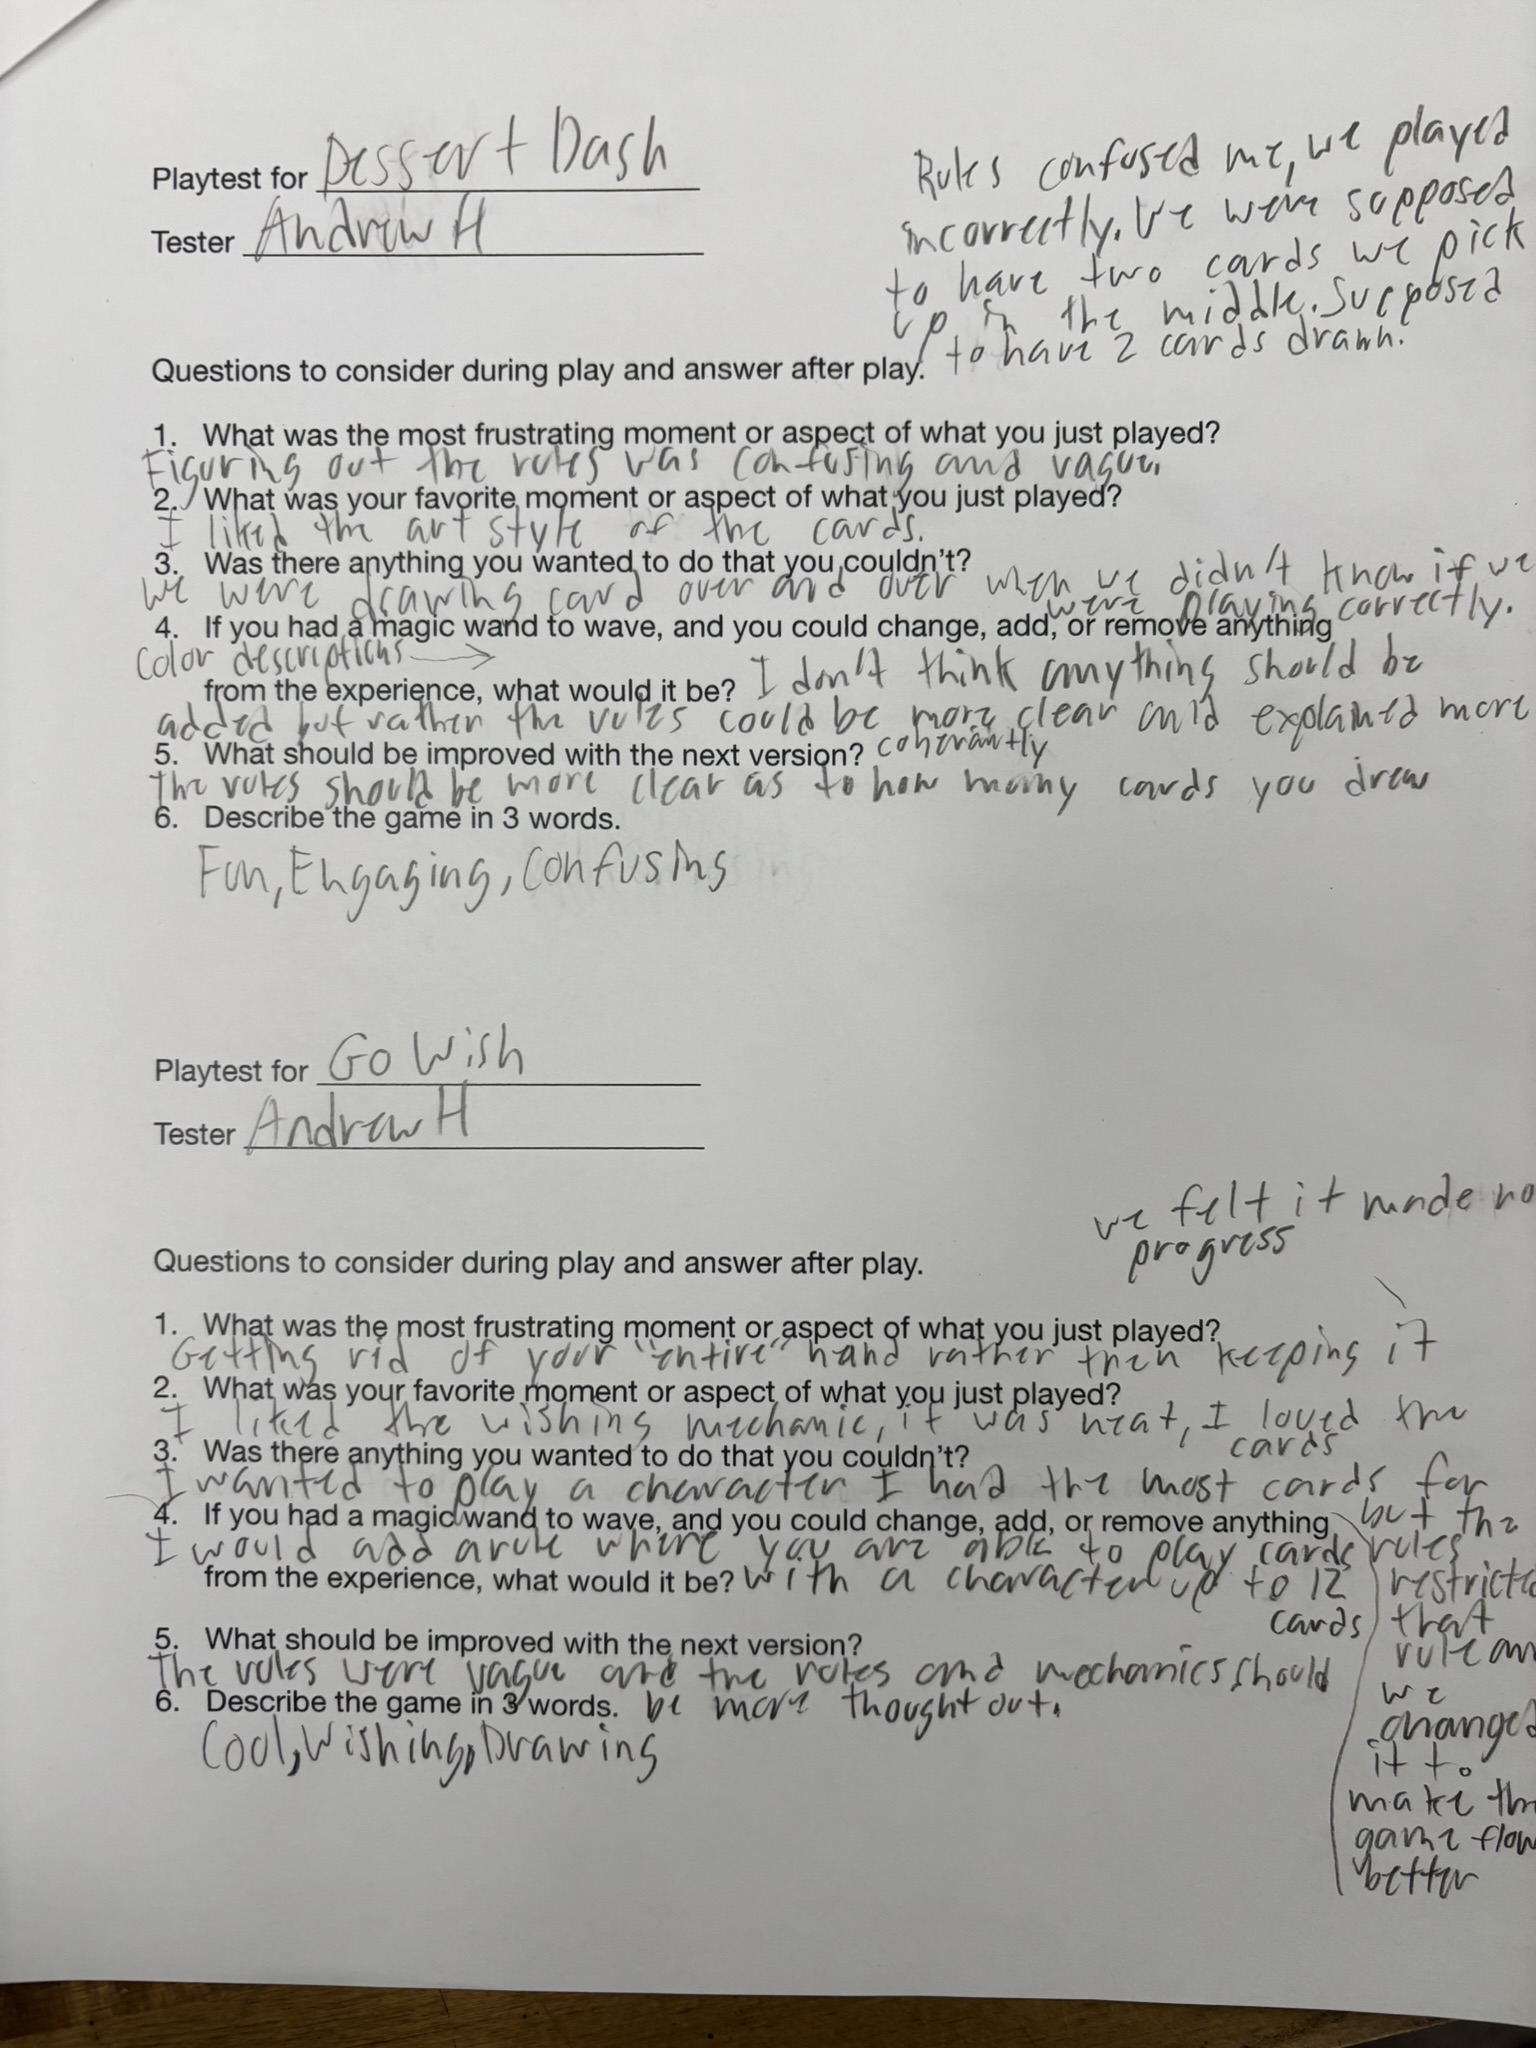 Playtest for Dessert Dash
Tester Andrew H
Rules confused me, we played
incorrectly. We were supposed
to have two cards we pick
up in the middle. Supposed
to have 2 cards drawn.
Questions to consider during play and answer after play.
1. What was the most frustrating moment or aspect of what you just played?
Figuring out the rules was confusing and vague.
2. What was your favorite moment or aspect of what you just played?
I liked the art style of the cards.
3. Was there anything you wanted to do that you couldn't?
We were drawing card over and over when we didn't know if we
were playing correctly.
4. If you had a magic wand to wave, and you could change, add, or remove anything
Color descriptions →
from the experience, what would it be? I don't think anything should be
added but rather the rules could be more clear and explained more
coherantly
5. What should be improved with the next version?
The rules should be more clear as to how many cards you drew
6. Describe the game in 3 words.
Fun, Engaging, Confusing
Playtest for Go Wish
Tester Andrew H
we felt it made no
progress
Questions to consider during play and answer after play.
1. What was the most frustrating moment or aspect of what you just played?
Getting rid of your "entire" hand rather then keeping it
2. What was your favorite moment or aspect of what you just played?
I liked the wishing mechanic, it was neat, I loved the
cards
3. Was there anything you wanted to do that you couldn't?
I wanted to play a character I had the most cards for
but the
rules
restricted
that
rule an
we
changed
it to
make the
game flow
better
4. If you had a magic wand to wave, and you could change, add, or remove anything
I would add a rule where you are able to play cards
from the experience, what would it be? with a character up to 12
cards
5. What should be improved with the next version?
The rules were vague and the rules and mechanics should
be more thought out.
6. Describe the game in 3 words.
Cool, Wishing, Drawing